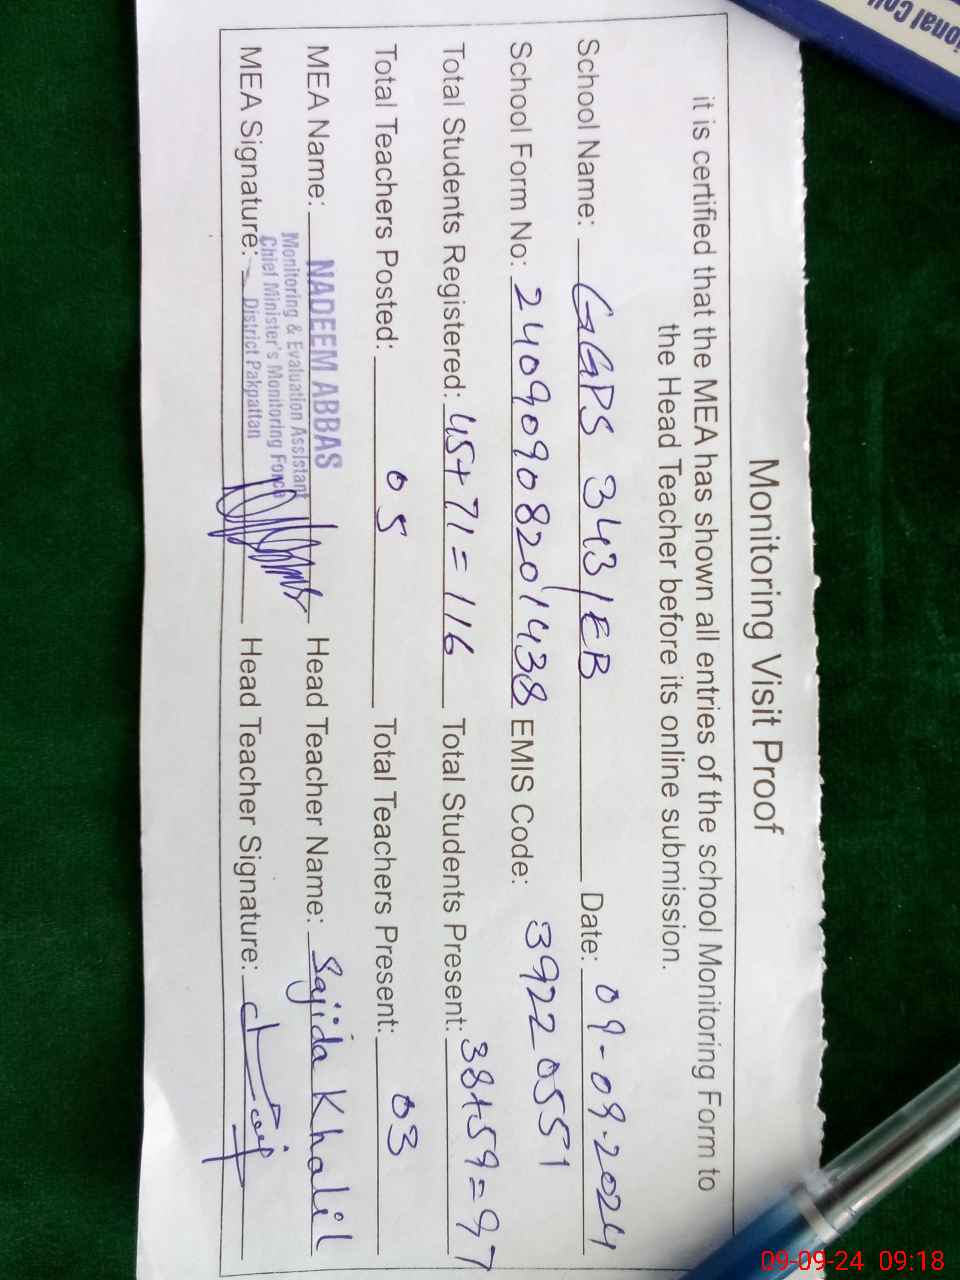 Monitoring Visit Proof
it is certified that the MEA has shown all entries of the school Monitoring Form to
the Head Teacher before its online submission.
School Name: GGPS 343/EB Date: 09-09-2024
School Form No: 24090908201438 EMIS Code: 3922 0551
Total Students Registered: 45+71=116 Total Students Present: 38+59=97
Total Teachers Posted: 05 Total Teachers Present: 03
MEA Name: NADEEM ABBAS Head Teacher Name: Sajida Khalil
Monitoring & Evaluation Assistant
Chief Minister's Monitoring Force
District Pakpattan
MEA Signature: Head Teacher Signature:
09-09-24 09:18